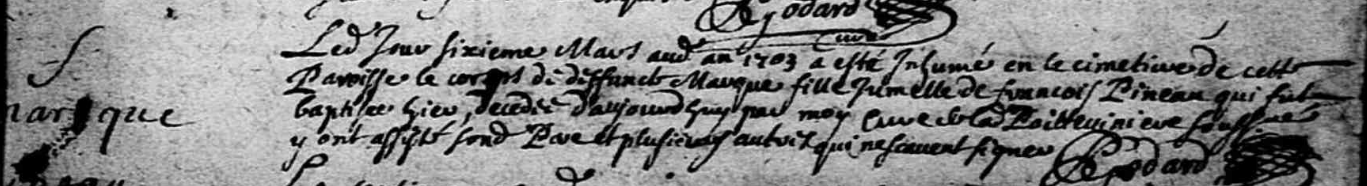 Godard
Curé
S
Led Jour sixieme Mars aud an 1703 a esté Inhumé en le cimetiere de cette
Paroisse le corps de deffuncte Marque fille Jumelle de francois Pineau qui fut
marque
baptisee hier, decedée d'aujourdhuy par moy Curé de lad Poitteviniere
y ont assisté sond Pere et plusieurs autres qui ne scavent signer
Godard